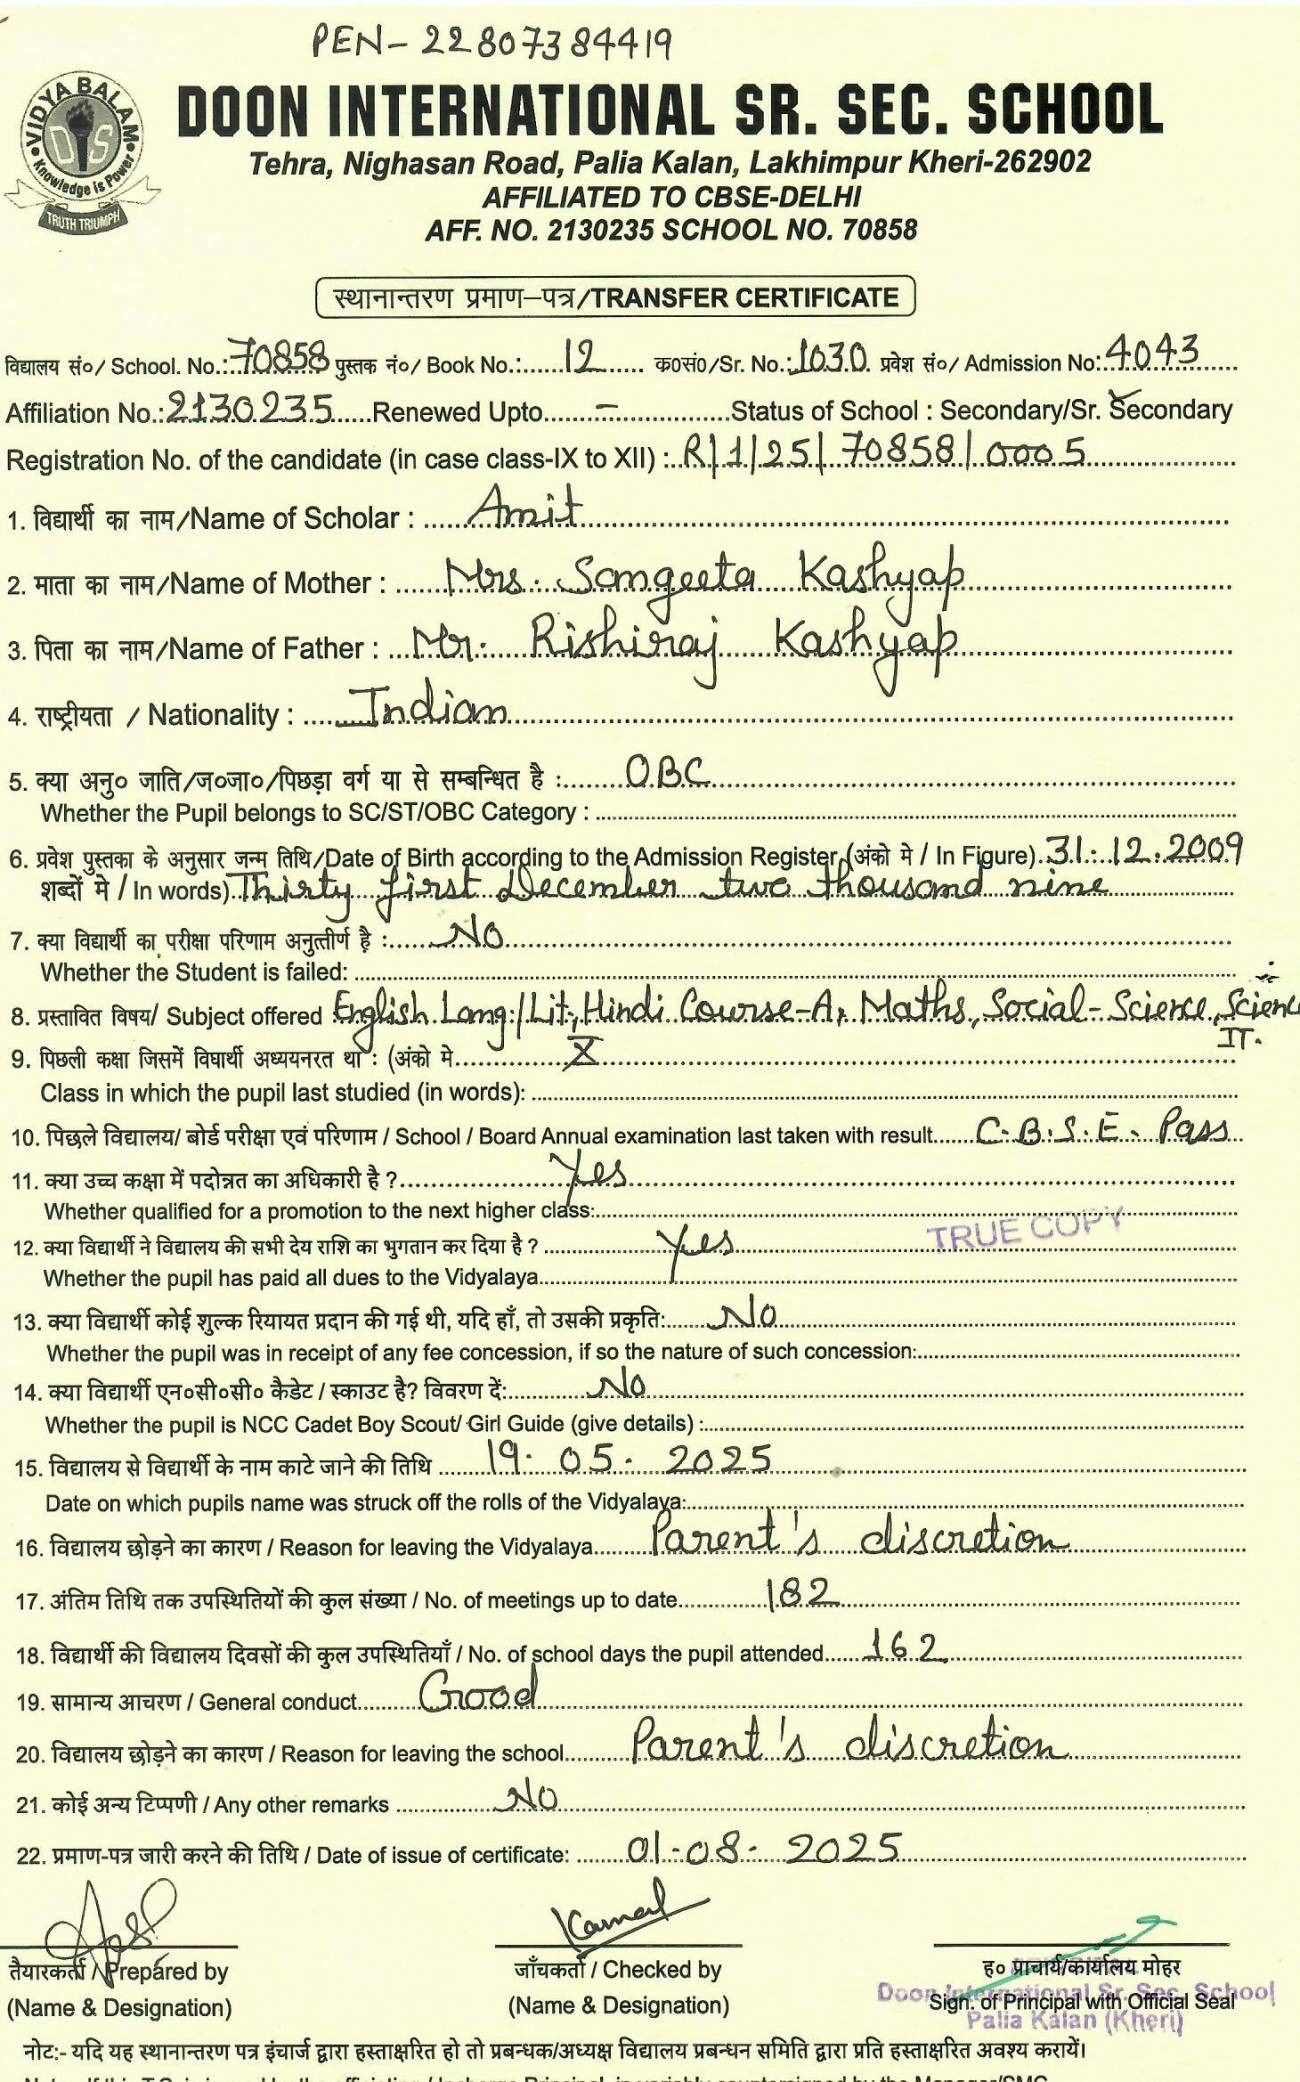 PEN- 22807384419
VIDYA BALAM
DIS
Knowledge is Power
TRUTH TRIUMPH
DOON INTERNATIONAL SR. SEC. SCHOOL
Tehra, Nighasan Road, Palia Kalan, Lakhimpur Kheri-262902
AFFILIATED TO CBSE-DELHI
AFF. NO. 2130235 SCHOOL NO. 70858
स्थानान्तरण प्रमाण–पत्र/TRANSFER CERTIFICATE
विद्यालय सं०/ School. No.: 70858 पुस्तक नं०/ Book No.: 12 क०सं०/Sr. No.: 1030 प्रवेश सं०/ Admission No: 4043
Affiliation No.: 2130235 Renewed Upto – Status of School : Secondary/Sr. Secondary
Registration No. of the candidate (in case class-IX to XII) : R|1|25|70858|0005
1. विद्यार्थी का नाम/Name of Scholar : Amit
2. माता का नाम/Name of Mother : Mrs. Sangeeta Kashyap
3. पिता का नाम/Name of Father : Mr. Rishiraj Kashyap
4. राष्ट्रीयता / Nationality : Indian
5. क्या अनु० जाति/ज०जा०/पिछड़ा वर्ग या से सम्बन्धित है : OBC
Whether the Pupil belongs to SC/ST/OBC Category :
6. प्रवेश पुस्तका के अनुसार जन्म तिथि/Date of Birth according to the Admission Register (अंको मे / In Figure) 31.12.2009
शब्दों मे / In words) Thirty first December two thousand nine
7. क्या विद्यार्थी का परीक्षा परिणाम अनुत्तीर्ण है : NO
Whether the Student is failed:
8. प्रस्तावित विषय/ Subject offered English Lang/Lit, Hindi Course-A, Maths, Social-Science, Science
IT.
9. पिछली कक्षा जिसमें विघार्थी अध्ययनरत था : (अंको मे X
Class in which the pupil last studied (in words):
10. पिछले विद्यालय/ बोर्ड परीक्षा एवं परिणाम / School / Board Annual examination last taken with result C.B.S.E. Pass
11. क्या उच्च कक्षा में पदोन्नत का अधिकारी है ? Yes
Whether qualified for a promotion to the next higher class:
TRUE COPY
12. क्या विद्यार्थी ने विद्यालय की सभी देय राशि का भुगतान कर दिया है ? Yes
Whether the pupil has paid all dues to the Vidyalaya
13. क्या विद्यार्थी कोई शुल्क रियायत प्रदान की गई थी, यदि हाँ, तो उसकी प्रकृति: No
Whether the pupil was in receipt of any fee concession, if so the nature of such concession:
14. क्या विद्यार्थी एन०सी०सी० कैडेट / स्काउट है? विवरण दें: No
Whether the pupil is NCC Cadet Boy Scout/ Girl Guide (give details) :
15. विद्यालय से विद्यार्थी के नाम काटे जाने की तिथि 19. 05. 2025
Date on which pupils name was struck off the rolls of the Vidyalaya:
16. विद्यालय छोड़ने का कारण / Reason for leaving the Vidyalaya Parent's discretion
17. अंतिम तिथि तक उपस्थितियों की कुल संख्या / No. of meetings up to date 182
18. विद्यार्थी की विद्यालय दिवसों की कुल उपस्थितियाँ / No. of school days the pupil attended 162
19. सामान्य आचरण / General conduct Good
20. विद्यालय छोड़ने का कारण / Reason for leaving the school Parent's discretion
21. कोई अन्य टिप्पणी / Any other remarks NO
22. प्रमाण-पत्र जारी करने की तिथि / Date of issue of certificate: 01-08-2025
Kamal
तैयारकर्ता / Prepared by जाँचकर्ता / Checked by ह० प्राचार्य/कार्यालय मोहर
(Name & Designation) (Name & Designation) Sign. of Principal with Official Seal
Doon International Sr. Sec. School
Palia Kalan (Kheri)
नोट:- यदि यह स्थानान्तरण पत्र इंचार्ज द्वारा हस्ताक्षरित हो तो प्रबन्धक/अध्यक्ष विद्यालय प्रबन्धन समिति द्वारा प्रति हस्ताक्षरित अवश्य करायें।